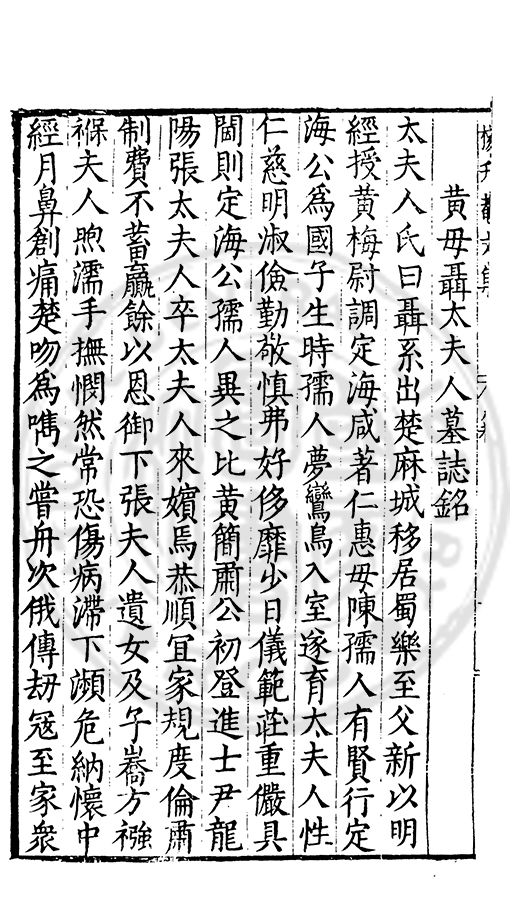 黃母聶太夫人墓誌銘
太夫人氏曰聶系出楚麻城移居蜀樂至父新以明
經授黃梅尉調定海咸著仁惠母陳孺人有賢行定
海公為國子生時孺人夢鸞鳥入室遂育太夫人性
仁慈明淑儉勤敬慎弗好侈靡少日儀範莊重儼具
閫則定海公孺人異之比黃簡肅公初登進士尹龍
陽張太夫人卒太夫人來嬪焉恭順宜家規度倫肅
制費不蓄贏餘以恩御下張夫人遺女及子嶠方襁
褓夫人煦濡手撫憫然常恐傷病滯下瀕危納懷中
經月鼻創痛楚吻為嚌之嘗舟次俄傳劫寇至家衆